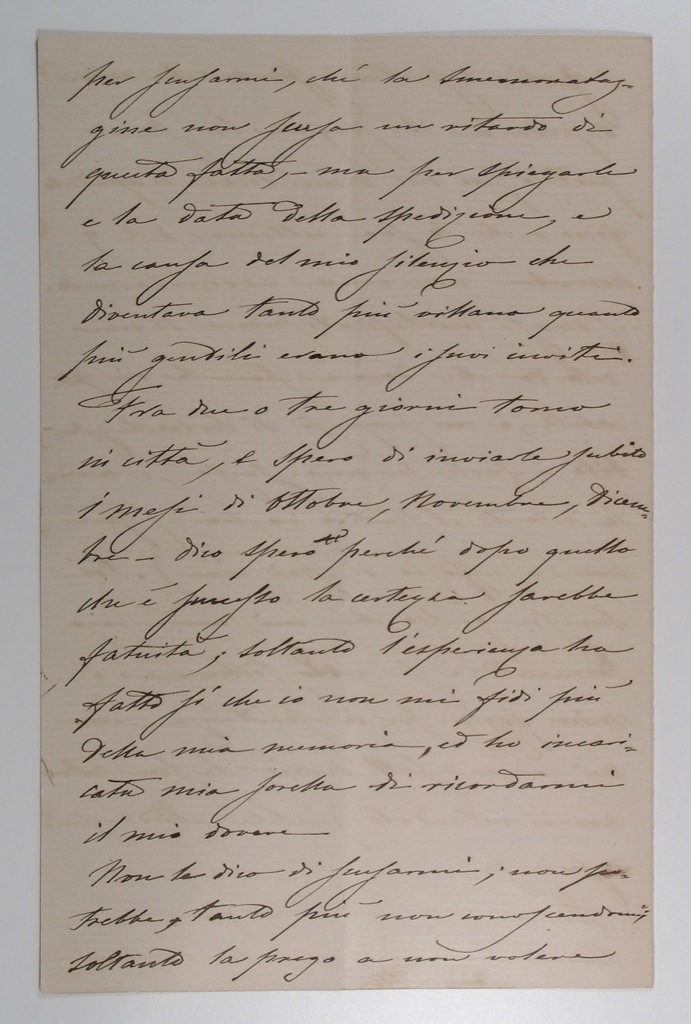 per scusarmi, ché la smemoratag-
gine non scusa un ritardo di
questa fatta, – ma per spiegarle
e la data della spedizione, e
la causa del mio silenzio che
diventava tanto più villano quanto
più gentili erano i suoi inviti.
Fra due o tre giorni torno
in città, e spero di inviarle subito
i mesi di Ottobre, Novembre, Dicem-
bre – dico spero perché dopo quello
che è successo la certezza sarebbe
fatuità; soltanto l'esperienza ha
fatto sì che io non mi fidi più
della mia memoria, ed ho incari-
cata mia sorella di ricordarmi
il mio dovere
Non le dico di scusarmi; non po-
trebbe, tanto più non conoscendomi;
soltanto la prego a non volere